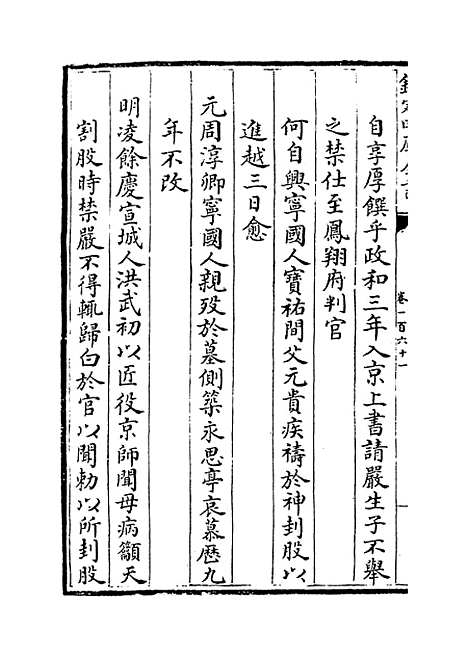 欽定四庫全書
卷一百六十一
自享厚饌乎政和三年入京上書請嚴生子不舉
之禁仕至鳳翔府判官
何自興寧國人寶祐間父元貴疾禱於神刲股以
進越三日愈
元周淳卿寧國人親歿於墓側築永思亭哀慕歴九
年不改
明凌餘慶宣城人洪武初以匠役京師聞母病籲天
割股時禁嚴不得輒歸白於官以聞勅以所刲股